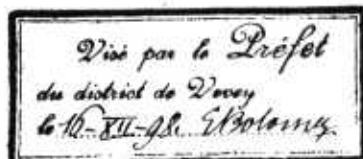 Visé par le Préfet
du district de Vevey
le 16-XII-98. EBolomey